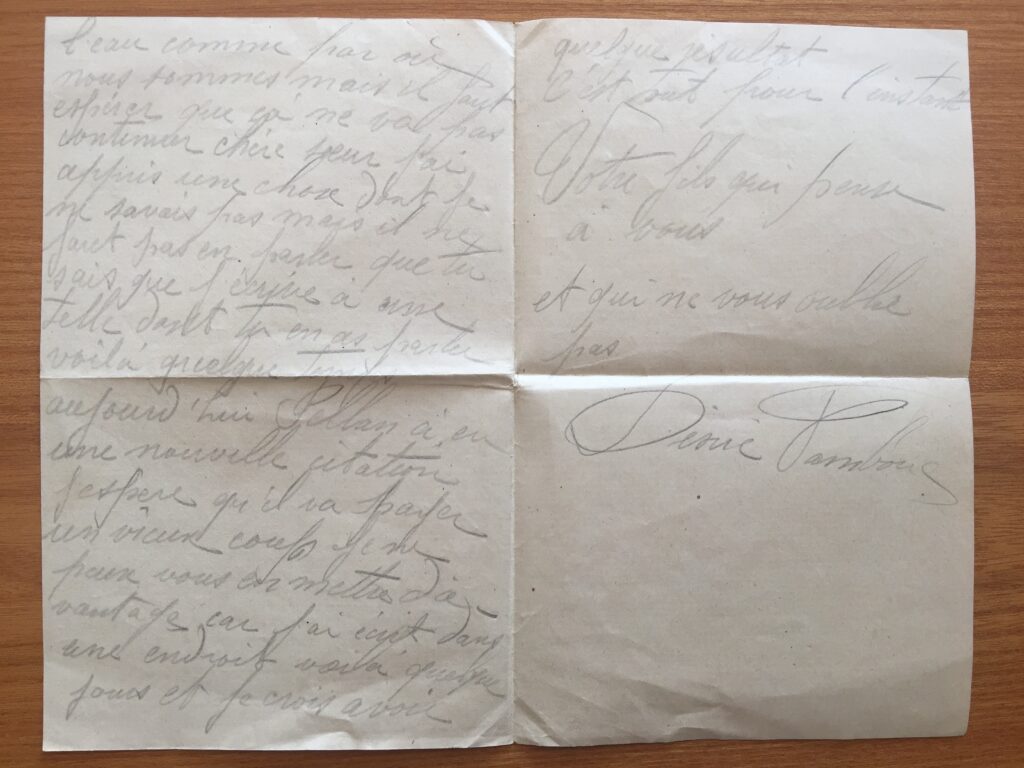 l'eau comme par où
nous sommes mais il faut
espérer que ça ne va pas
continuer chére seur j'ai
appris une chose dont je
ne savais pas mais il ne
faut pas en parler que tu
sais que j'ecrive à une
telle dont tu en as parler
voilà quelque
aujourd'hui à eu
une nouvelle citation
j'espère qu'il va payer
un vieux coup je ne
peux vous en mettre d'a-
vantage car j'ai écrit dans
une endroit voilà quelque
jours et je crois avoir
quelque résultat
C'est tout pour l'instant
Votre fils qui pense
à vous
et qui ne vous oublie
pas